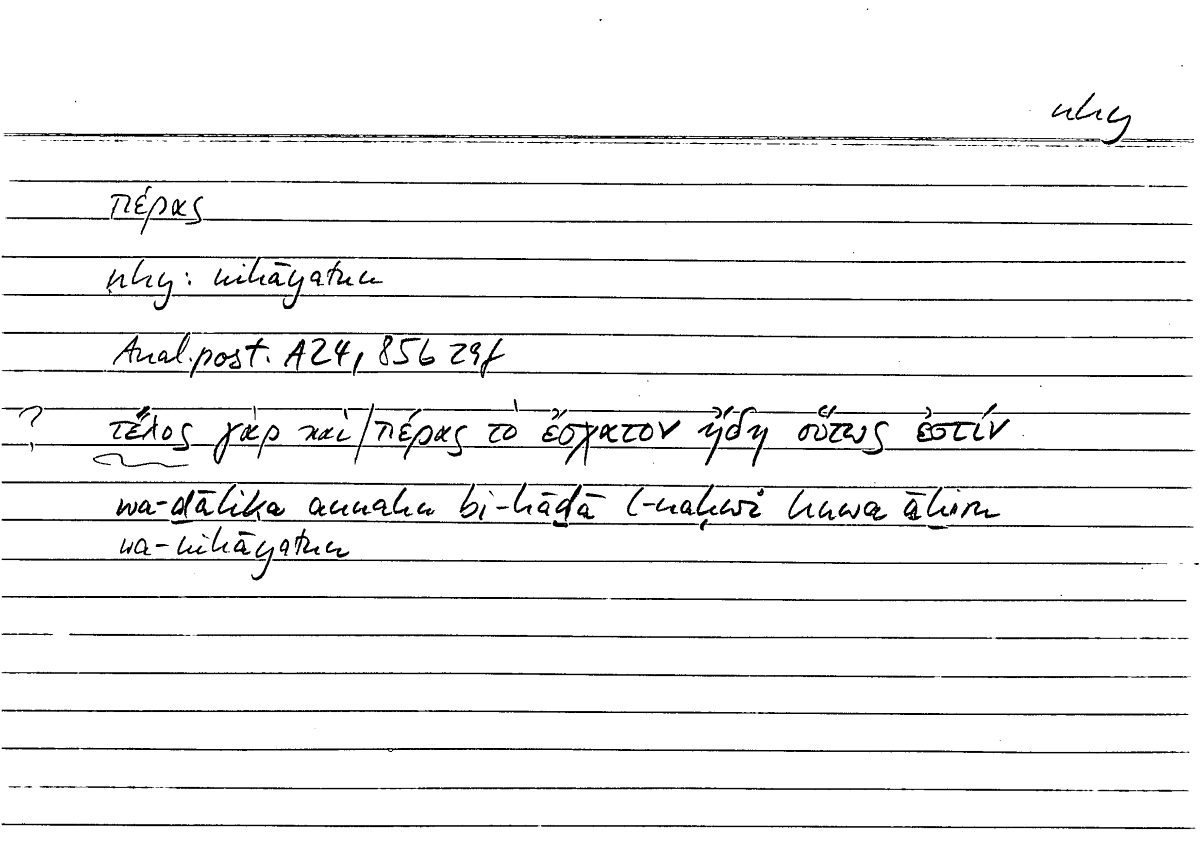 nhy
πέρας
nhy: nihāyatun
Anal.post. A24, 85b 29f
? τέλος γὰρ καὶ/πέρας τὸ ἔσχατον ἤδη οὕτως ἐστίν
wa-ḏālika annahu bi-hāḏā l-naḥwi huwa āḫiru
wa-nihāyatun